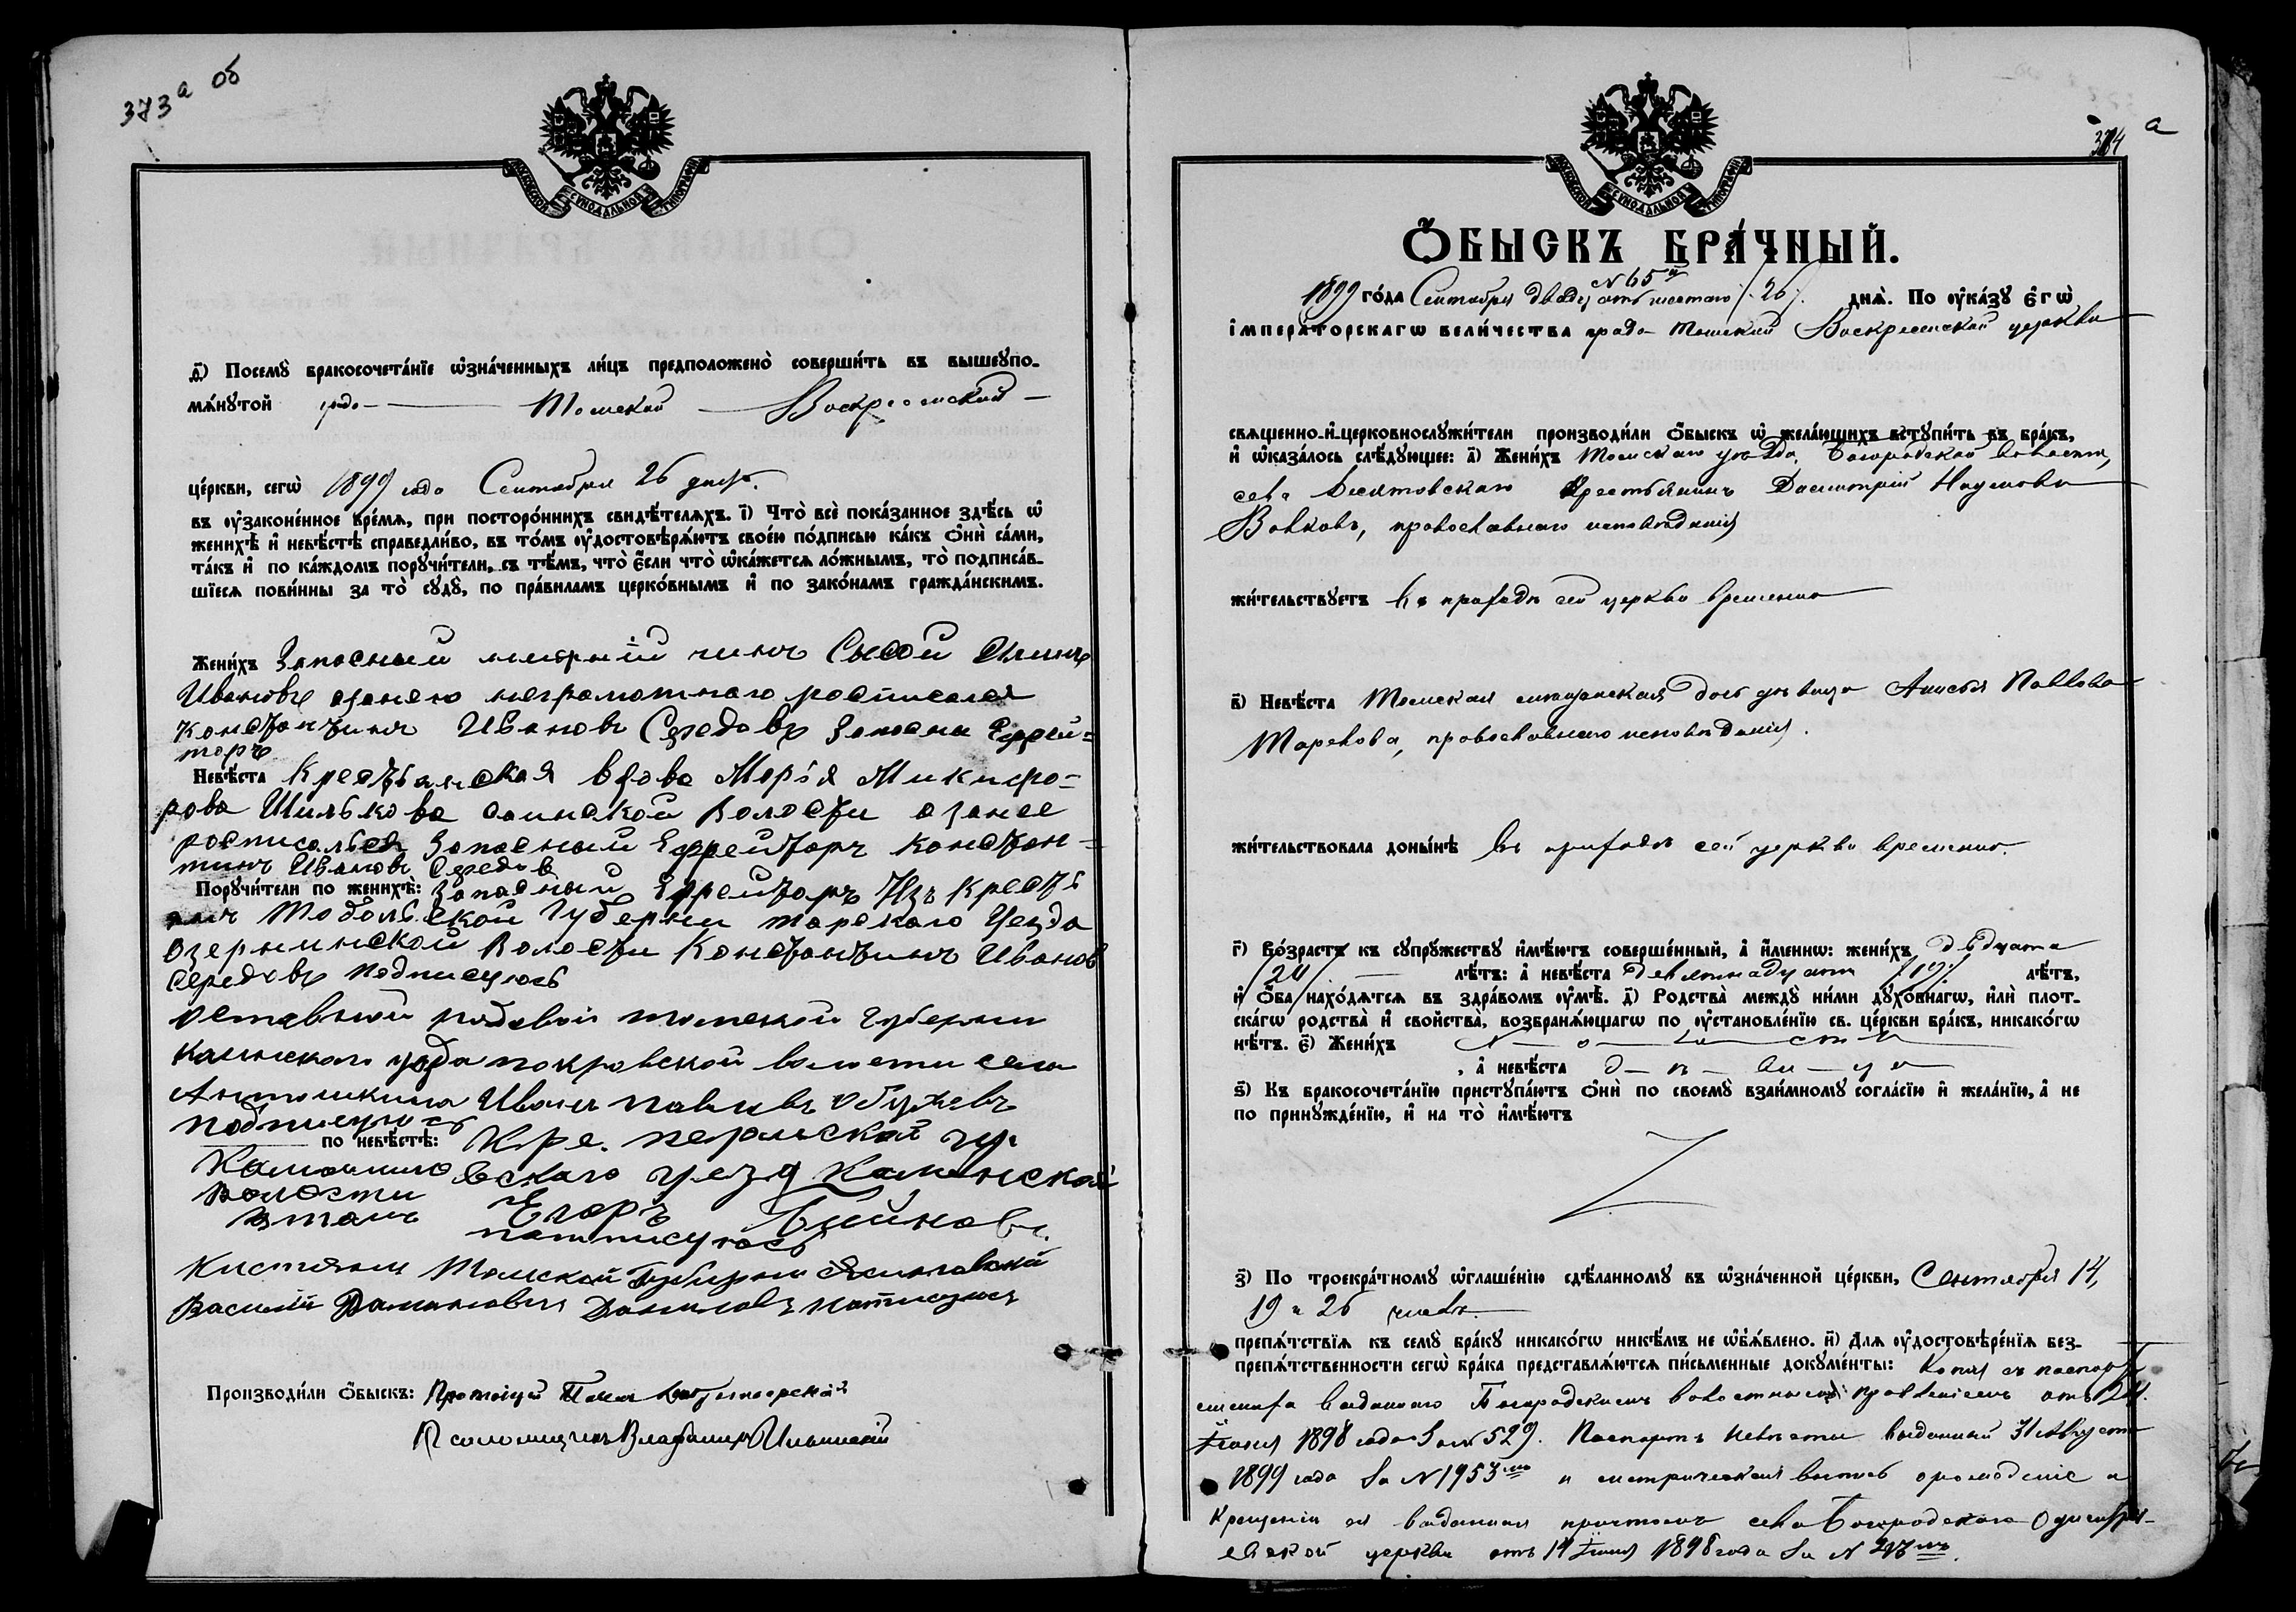 373а об
МОСКОВСКОЙ СѴНОДАЛЬНОЙ ТИПОГРАФІИ
д҃і) Посемꙋ̀ бракосочета́нїе ѡ҆зна́ченныхъ ли́цъ предположено̀ соверши́ть въ вышеꙋпо-
мѧ́нꙋтой градо - Томской - Воскресенской -
це́ркви, сегѡ̀ 1899 года Сентября 26 дня.
въ ᲂу҆законе́нное вре́мѧ, при посторо́ннихъ свидѣ́телѧхъ. і҃) Что̀ всѐ пока́занное здѣ́сь ѡ҆
женихѣ̀ и҆ невѣ́стѣ справедли́во, въ то́мъ ᲂу҆достовѣрѧ́ютъ свое́ю по́дписью ка́къ ѻ҆нѝ са́ми,
та́къ и҆ по ка́ждомъ порꙋчи́тели, съ тѣ́мъ, что̀ є҆́сли что̀ ѡ҆ка́жетсѧ ло́жнымъ, то̀ подписа́в-
шїесѧ пови́нны за то̀ сꙋдꙋ̀, по пра́виламъ церко́внымъ и҆ по зако́намъ гражда́нскимъ.
Жени́хъ Запасный чинъ Сысой
Ивановъ азанево неграмотнаго росписался
Константинъ Ивановъ Середовъ Запасны Ефрей=
торъ
Невѣ́ста Крестьянская вдова Марія Микифо-
рова Шилькова волости азанее
росписался Запасный Ефрейторъ Констан-
тинъ Ивановъ Середовъ
Порꙋчи́тели по женихѣ̀: Запасный Ефрейторъ Изъ Кресть
янъ Тобольской Губерни Тарскаго Уезда
Озернинской Волости Константинъ Ивановъ
Середовъ подписуюсь
Отставной рядовой томской губернии
Каинскаго уезда покровской волости села
Антошкина Иванъ павловъ
подписуюсь
по невѣ́стѣ: Кре. пермской гу.
Камышловскаго уезд Каменской
волости
Егоръ
патписуюсь
Томской Губернии
Василій Даниловъ патписуюсь
Производи́ли ѻ҆́быскъ: Протоіерей Павелъ
Псаломщикъ Владимиръ Ильинскій
374 а
МОСКОВСКОЙ СѴНОДАЛЬНОЙ ТИПОГРАФІИ
Ѻ҆́БЫСКЪ БРА́ЧНЫЙ.
N 65й
1899 го́да Сентября двадцать шестаго /26/. днѧ̀. По ᲂу҆ка́зꙋ є҆гѡ̀
і҆мпера́торскагѡ вели́чества градо - Томской Воскресенской церкви
свѧщенно-и҆-церковнослꙋжи́тели производи́ли ѻ҆́быскъ ѡ҆ жела́ющихъ встꙋпи́ть въ бра́къ,
и҆ ѡ҆каза́лось слѣ́дꙋющее: а҃) Жени́хъ Томскаго уѣзда, Богородской волости,
села Десятовскаго крестьянинъ Димитрій Наумовъ
Волковъ, православнаго исповѣданія
жи́тельствꙋетъ въ приходѣ сей церкви временно
в҃) Невѣ́ста Томская мѣщанская дочь дѣвица Анисья Павлова
Тарекова, православнаго исповѣданія.
жи́тельствовала доны́нѣ въ приходѣ сей церкви временно.
г҃) Во́зрастъ къ сꙋпрꙋ́жествꙋ и҆мѣ́ютъ соверше́нный, а҆ и҆́менно: жени́хъ двадцати
/24/. лѣ́тъ: а҆ невѣ́ста девятнадцати /19/. лѣ́тъ,
и҆ ѻ҆́ба нахо́дѧтсѧ въ здра́вомъ ᲂу҆мѣ̀. д҃) Родства̀ междꙋ̀ ни́ми дꙋхо́внагѡ, и҆лѝ плот-
ска́гѡ родства̀ и҆ сво́йства̀, возбранѧ́ющагѡ по ᲂу҆становле́нїю св. це́ркви бра́къ, никако́гѡ
нѣ́тъ. є҃) Жени́хъ холостъ
, а҆ невѣ́ста д - ѣ - ви - ц а
ѕ҃) Къ бракосочета́нїю пристꙋпа́ютъ ѻ҆нѝ по своемꙋ̀ взаи́мномꙋ согла́сїю и҆ жела́нїю, а҆ не
по принꙋжде́нїю, и҆ на то̀ и҆мѣ́ютъ
з҃) По троекра́тномꙋ ѡ҆глаше́нїю сдѣ́ланномꙋ въ ѡ҆зна́ченной це́ркви, Сентября 14,
19 и 26 числѣ
препѧ́тствїѧ къ семꙋ̀ бра́кꙋ никако́гѡ никѣ́мъ не ѡ҆б̾ѧ́влено. и҃) Длѧ ᲂу҆достовѣре́нїѧ без-
препѧ́тственности сегѡ̀ бра́ка представлѧ́ютсѧ пи́сьменные докꙋме́нты: Копія съ паспорта
жениха выданнаго Богородскимъ волостнымъ правленіемъ отъ 24
Іюня 1898 года за № 529. Паспортъ невѣсты выданный 31 Августа
1899 года за N 1953мъ и метрическая выпись о рожденіе и
крещеніи ея выданная причтомъ села Богородскаго Одигитрі-
евской церкви отъ 14 Іюня 1898 года за N